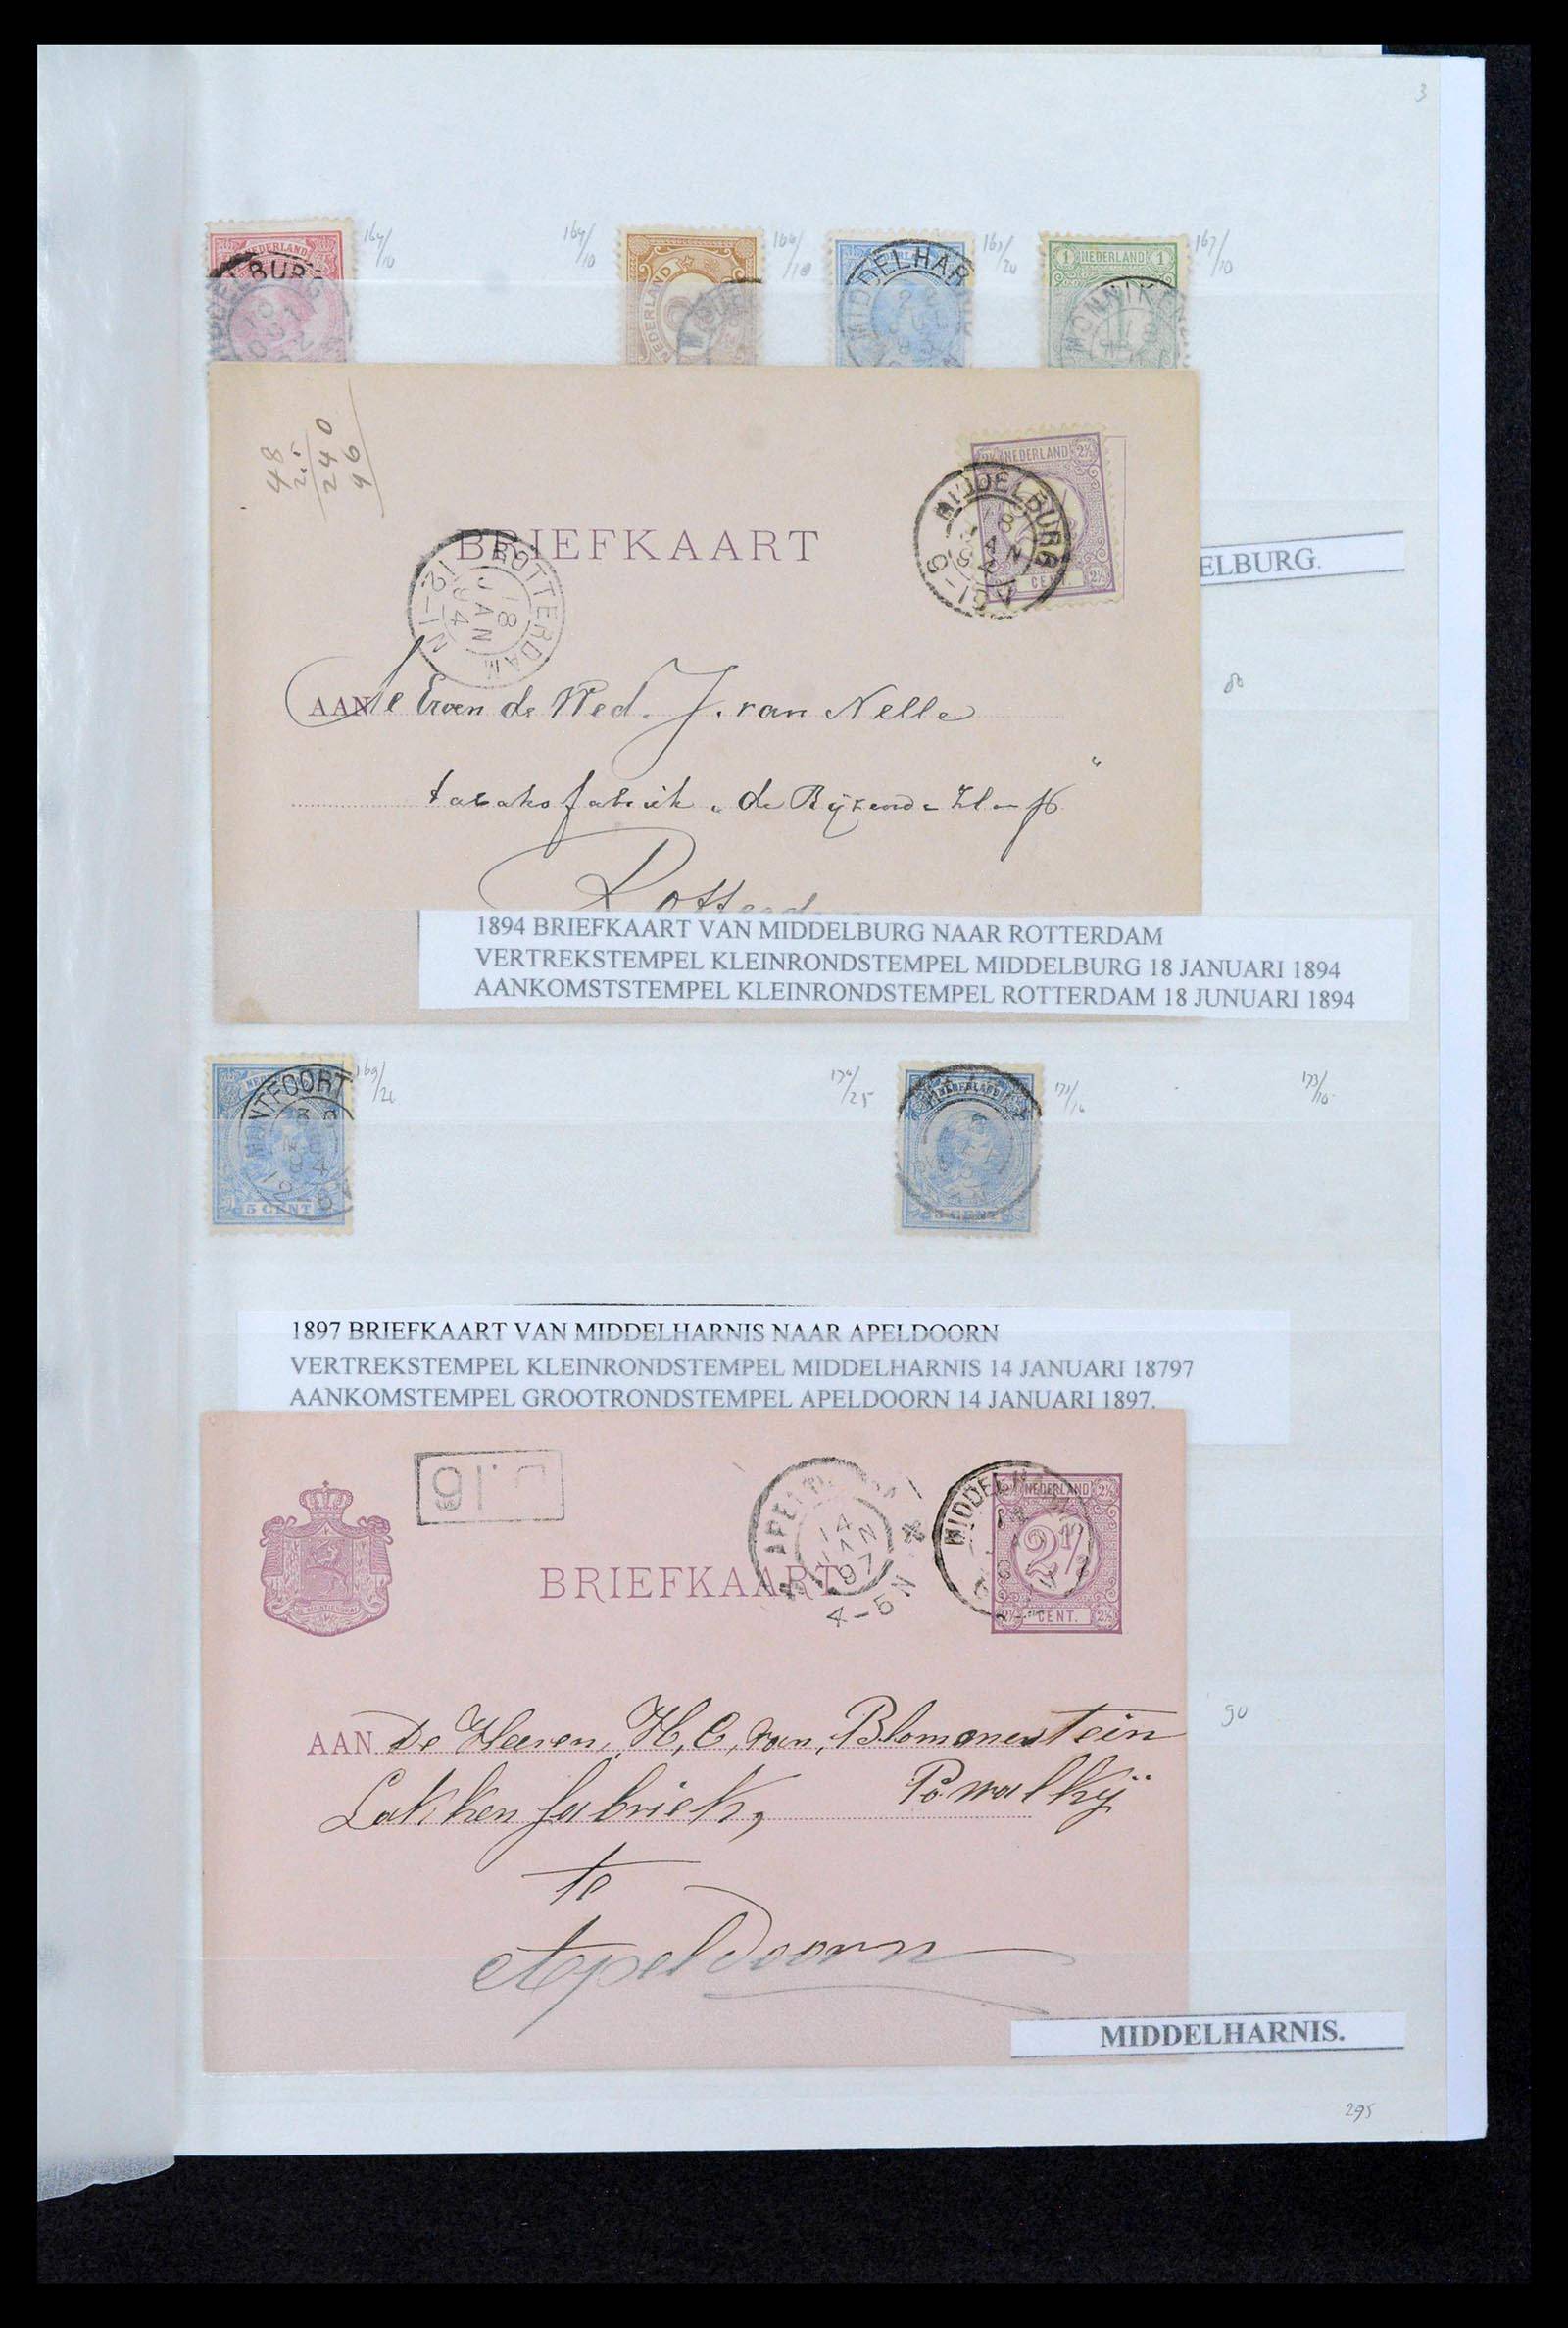 3
NEDERLAND
ELBURG
164/10
164/10
NEDERLAND
166/10
DDELHAR
167/20
1 NEDERLAND 1
MONNIK
167/10
48
240
96
2½ NEDERLAND 2½
MIDDELBURG
18
JAN
CENT. 2½
BRIEFKAART
ROTTERDAM
18
JAN
94
12-1N
ELBURG.
80
AAN de Erven de Wed. J. van Nelle
tabaksfabriek „de Rijzende
Rotterd
1894 BRIEFKAART VAN MIDDELBURG NAAR ROTTERDAM
VERTREKSTEMPEL KLEINRONDSTEMPEL MIDDELBURG 18 JANUARI 1894
AANKOMSTSTEMPEL KLEINRONDSTEMPEL ROTTERDAM 18 JUNUARI 1894
NTFOORT
5 CENT
169/20
170/25
NEDERLAND
5 CENT
171/10
173/10
1897 BRIEFKAART VAN MIDDELHARNIS NAAR APELDOORN
VERTREKSTEMPEL KLEINRONDSTEMPEL MIDDELHARNIS 14 JANUARI 18797
AANKOMSTEMPEL GROOTRONDSTEMPEL APELDOORN 14 JANUARI 1897.
14
JAN
97
4-5N
MIDDEL
2½ NEDERLAND 2½
2½
2½ CENT. 2½
BRIEFKAART
AAN De Heeren, H, C, van, Blomenestein
Lakken fabriek, Powalky
te
Apeldoorn
90
MIDDELHARNIS.
295